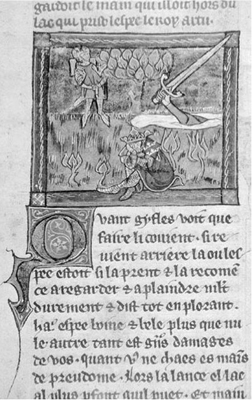 gardoit le main qui issoit hors du
lac qui prist lespee le roy artu.
Quant gyfles voit que
faire li couient. si re
uient arriere la ou les
pee estoit si la prent & la recom̄e
ce a regarder & a plaindre m̄lt
durement & dist tot en plorant.
ha. espee boine & bele plus que nu
le autre tant est gñs damages
de vos. quant vos ne chaes es mains
de preudome. Lors la lance el lac
al plus pfont quil puet. Et main